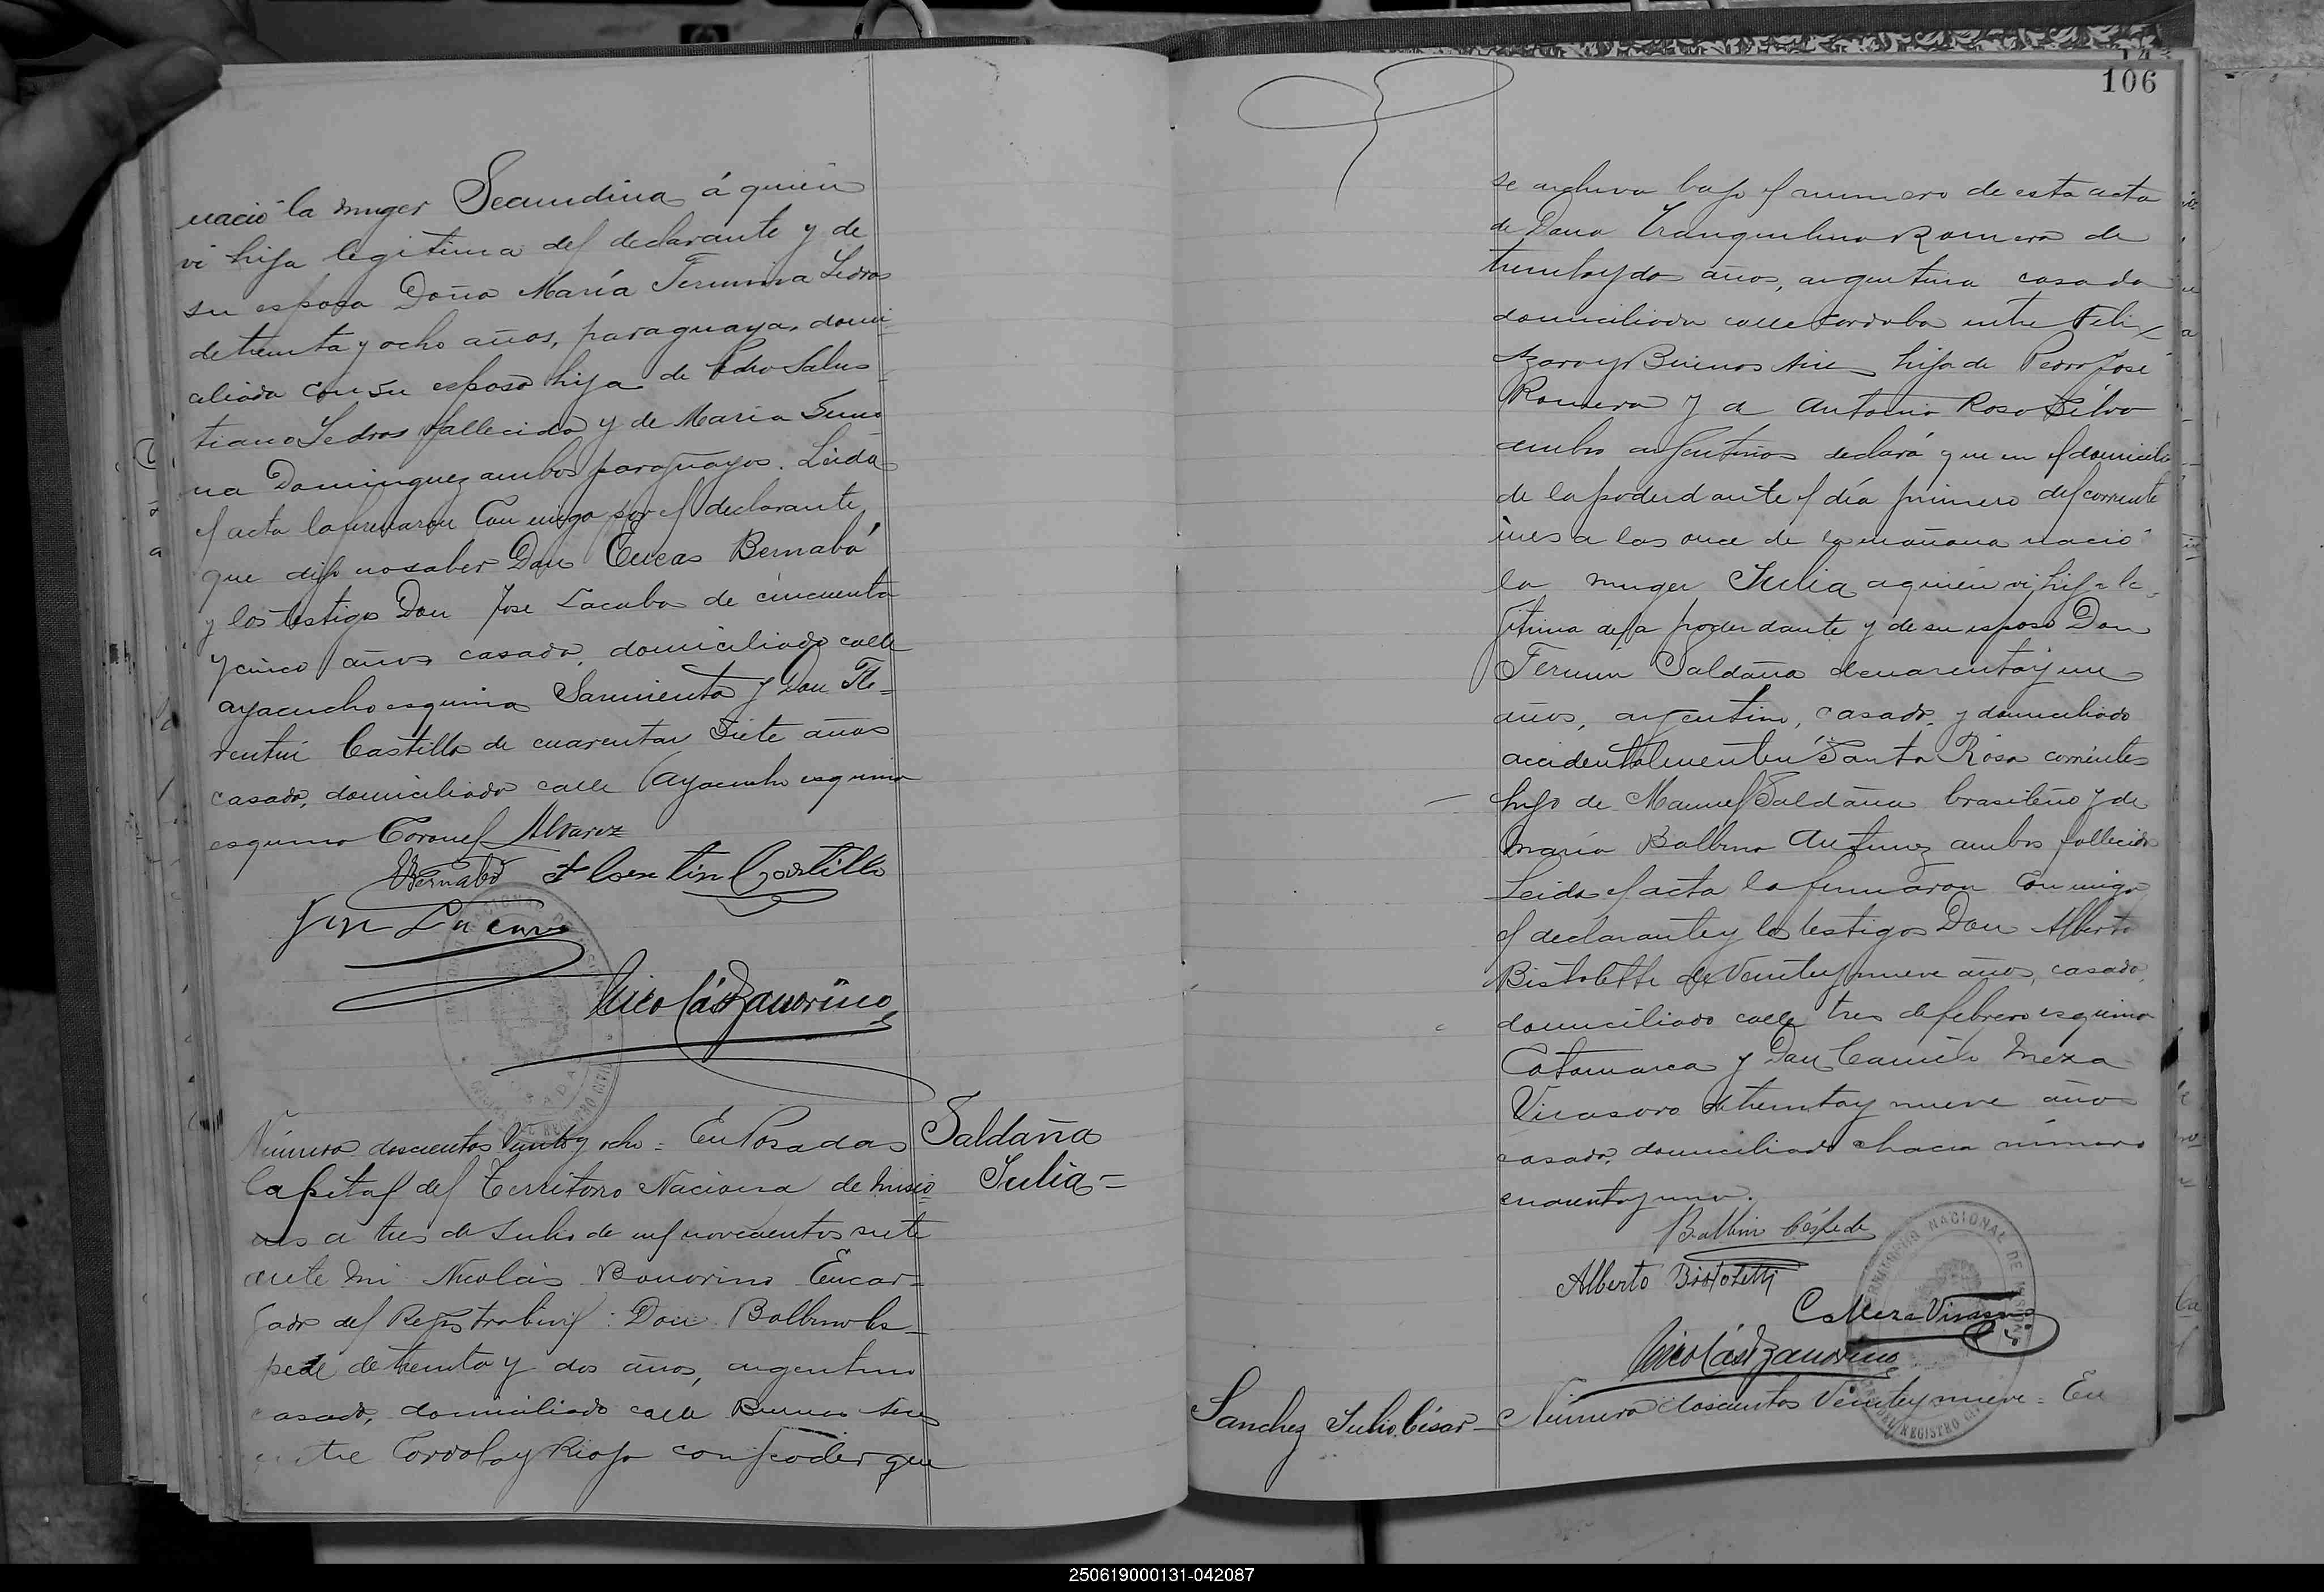 nació la muger Secundina á quien
vi hija legitima del declarante y de
su esposa Doña María Fermina Ledros
de treinta y ocho años, paraguaya, domi-
ciliada con su esposo hija de Pedro Salus-
tiano Ledros fallecido y de Maria
na Dominguez ambos paraguayos. Leida
el acta la firmaron Con migo por el declarante
que dijo no saber Don Eneas Bernabó
y los testigos Don Jose Lacaba de cincuenta
y cinco años casado, domiciliado calle
ayacucho esquina Sarmiento y Don Flo-
rentin Castillo de cuarenta y siete años
casado, domiciliado calle Ayacucho esquina
esquina Coronel Alvarez
EBernabó Florentin Castillo
Jose Lacava
Nicolás Bonorino
Número doscientos veinte y ocho = En Posadas
Capital del Territorio Nacional de Misio-
nes a tres de Julio de mil novecientos siete
ante mi Nicolás Bonorino Encar-
gado del Registro Civil: Don Balbino Ces-
pede de treinta y dos años, argentino
casado, domiciliado calle Buenos Aires
entre Cordoba y Rioja con poder que
Saldaña
Julia =
106
se archiva bajo el numero de esta acta
de Dona Tranquilina Romero de
treinta y dos años, argentina casada
domiciliada calle Cordoba entre Felix
Azara y Buenos Aires hija de Pedro José
Romero y de Antonia Rosa Silva
ambos argentinos declaró que en el domicilio
de la poderdante el día primero del corriente
mes a las once de la mañana nació
la muger Julia a quien vi hija le-
gitima de la poderdante y de su esposo Don
Fermin Saldaña de cuarenta y un
años, argentino, casado, y domiciliado
accidentalmente en Santa Rosa corrientes
hijo de Manuel Saldaña brasileño y de
María Balbina Antunez ambos fallecidos
Leida el acta la firmaron Con migo
el declarante y los testigos Don Alberto
Bistoletti de Veinte y nueve años, casado,
domiciliado calle tres de febrero esquina
Catamarca y Don Camilo Meza
Virasoro de treinta y nueve años
casado, domiciliado chacra número
cuarenta y uno.
Balbin Céspede
Alberto Bistoletti
C Meza Virasoro
Nicolás Bonorino
Sanchez Julio César = Número doscientos Veinte y nueve = En
250619000131-042087